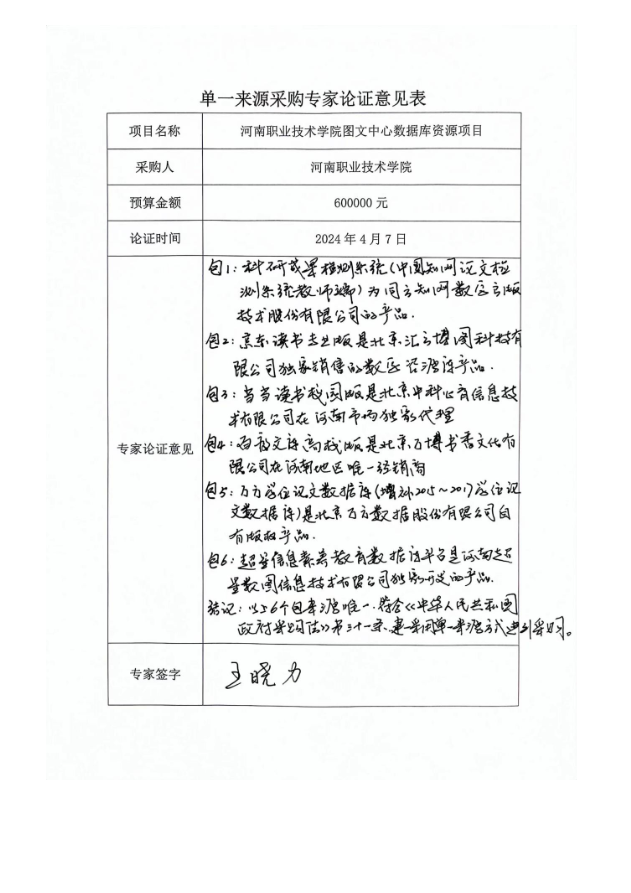 单一来源采购专家论证意见表
项目名称 河南职业技术学院图文中心数据库资源项目
采购人 河南职业技术学院
预算金额 600000 元
论证时间 2024 年 4 月 7 日
专家论证意见
包1：科研成果检测系统（中国知网论文检
测系统教师端）为同方知网数字出版
技术股份有限公司的产品．
包2：京东读书专业版是北京汇云博图科技有
限公司独家销售的数字资源产品．
包3：当当读书校园版是北京中科心育信息技
术有限公司在河南市场独家代理
包4：百度文库高校版是北京万博书香文化有
限公司在河南地区唯一经销商
包5：万方学位论文数据库（增补2015～2017学位论
文数据库）是北京万方数据股份有限公司自
有版权产品．
包6：超星信息素养教育数据库平台是河南超
星数图信息技术有限公司独家开发的产品．
结论：以上6个包来源唯一，符合《中华人民共和国
政府采购法》第三十一条，建议采用单一来源方式进行采购。
专家签字 王晓力